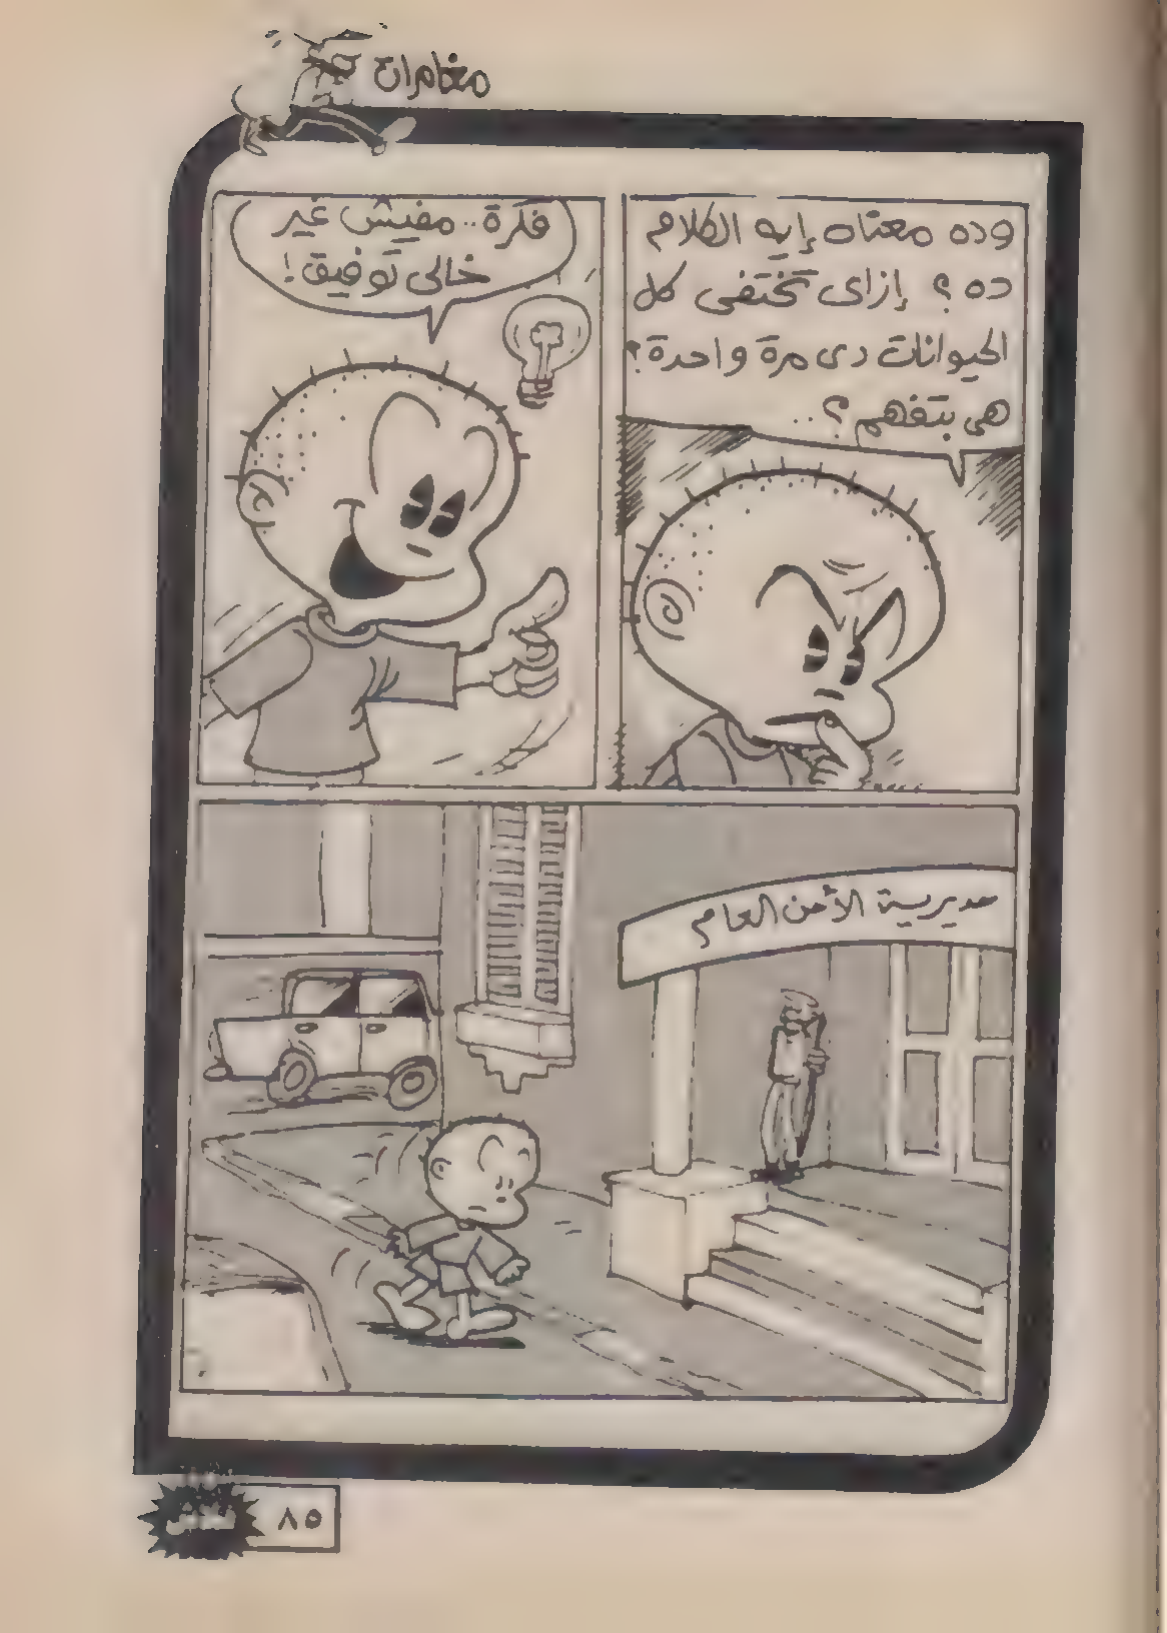 مغامرات
وده معناه إيه الكلام
ده ؟ إزاى تختفى كل
الحيوانات دى مرة واحدة؟
هى بتفهم ؟..
فكرة.. مفيش غير
خالى توفيق!
مديرية الأمن العام
٨٥